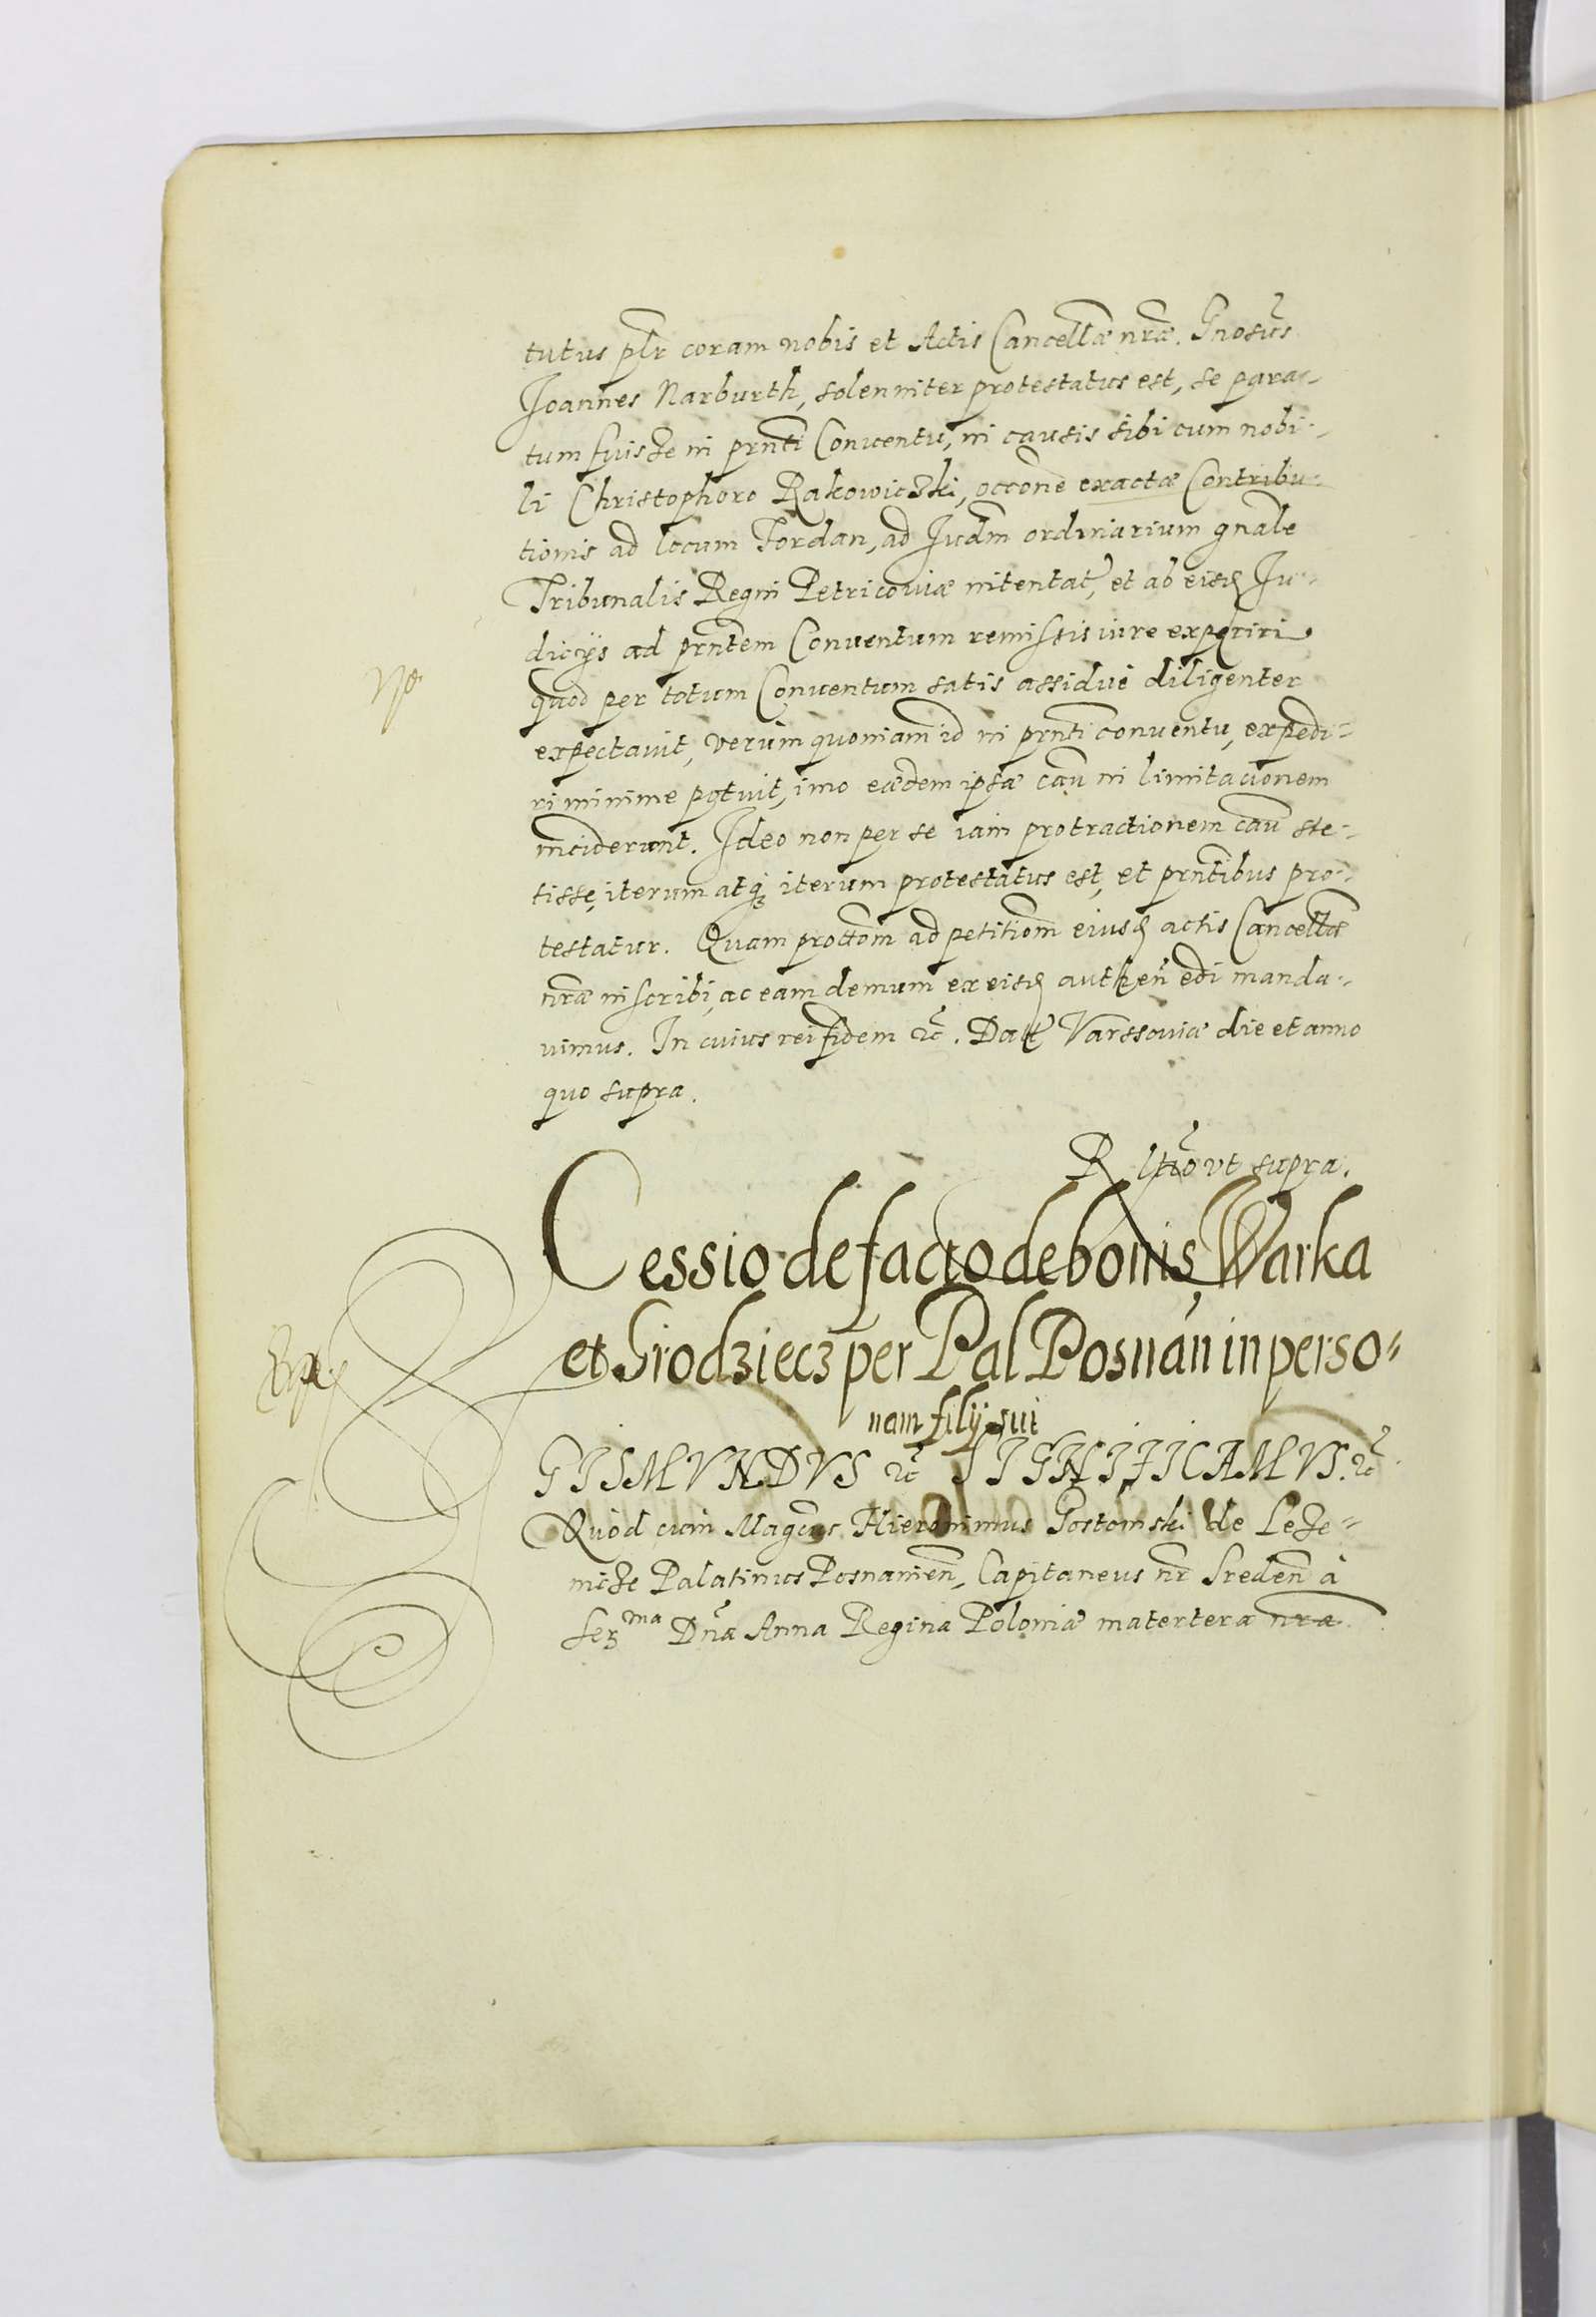 tutus plr coram nobis et Actis Cancellæ nræ. Gnosus
Joannes Narburth, solenniter protestatus est, se para-
tum fuisse in prnti Conuentu, in causis sibi cum nobi-
li Christophoro Rakowiczki, occone exactæ Contribu-
tionis ad locum Fordan, ad Judm ordinarium gnale
Tribunalis Regni Petricouiæ intentat, et ab eisd Ju-
dicijs ad prntem Conuentum remissis iure experiri
No
quod per totum Conuentum satis assidue diligenter
expectauit, verum quoniam id in prnti conuentu, expedi-
ri minime potuit, imo eædem ipsæ cau in limitacionem
inciderunt. Ideo non per se iam protractionem cau ste-
tisse, iterum atq iterum protestatus est, et prntibus pro-
testatur. Quam prottom ad petitiom eiusd actis Cancellæ
nræ inscribi, ac eam demum ex eisd authen edi manda-
uimus. In cuius rei fidem etc. Dat Varssouiæ die et anno
quo supra.
R ltio vt supra.
Cessio de facto de bonis Warka
et Grodziecz per Pal Posnan in perso-
nam filij sui
GISMVNDVS etc SIGNIFICAMVS. etc
Quod cum Magcus Hieronimus Gostomski de Leze-
nicze Palatinus Posnanien, Capitaneus nr Sreden à
Ser ma Dna Anna Regina Poloniæ matertera nra